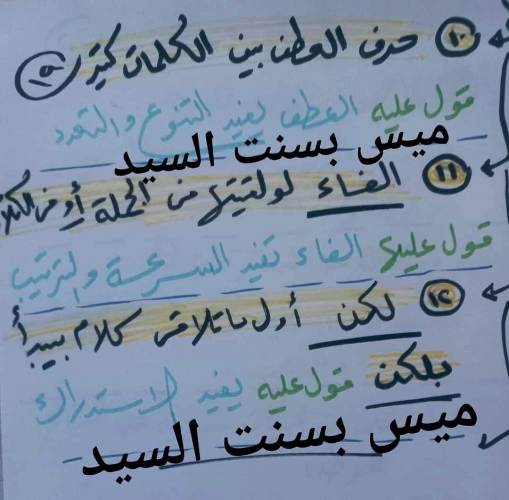 ١٠ حرف العطف بين الكلمات كتير
قول عليه العطف يفيد التنوع والتعدد
ميس بسنت السيد
١١ الفاء لو لقيتها في الجملة أو في الكلام
قول عليها الفاء تفيد السرعة والترتيب
١٢ لكن أول ما تلاقى كلام بيبدأ
بلكن قول عليه يفيد الاستدراك
ميس بسنت السيد